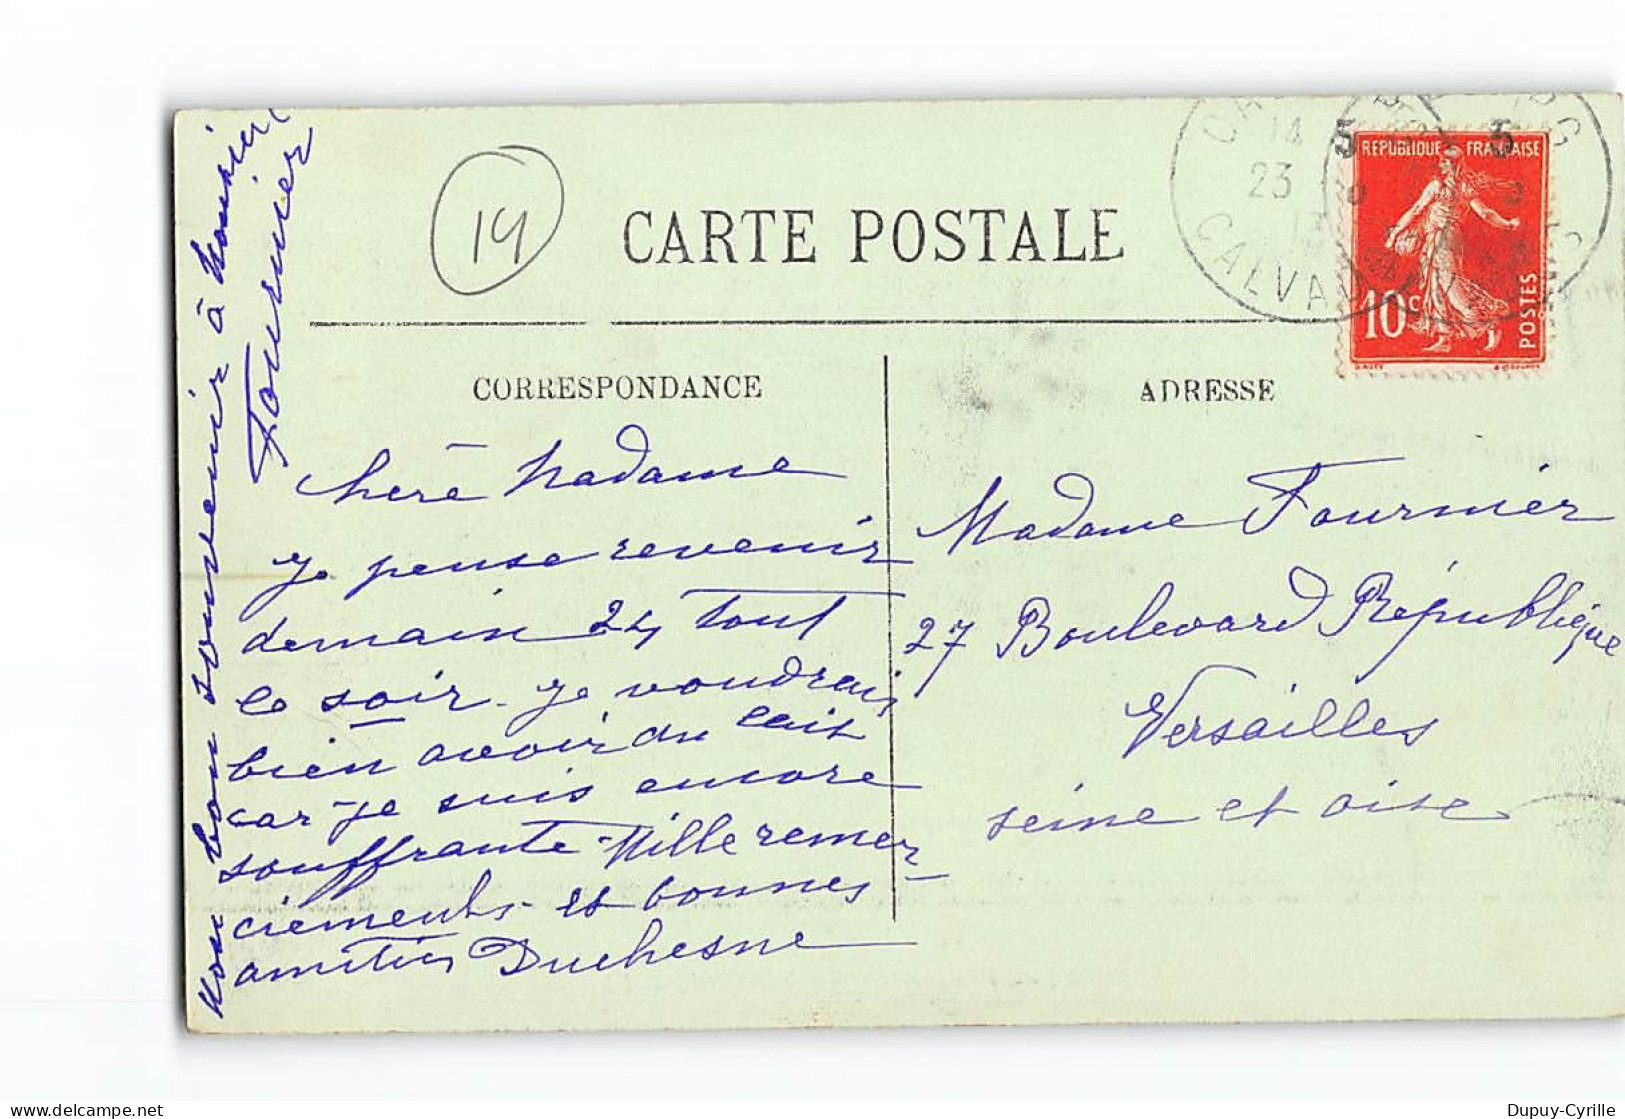 14
CARTE POSTALE
CORRESPONDANCE
ADRESSE
RÉPUBLIQUE FRANÇAISE
10c
POSTES
14
23
13
5
5
CALVA
chère Madame
je pense revenir
demain 24 tout
le soir - je voudrais
bien avoir du lait
car je suis encore
souffrante - Mille remer-
ciements et bonnes
amitiés Duchesne
bon souvenir à Monsieur
Fournier
Madame Fournier
27 Boulevard République
Versailles
seine et oise
Dupuy-Cyrille